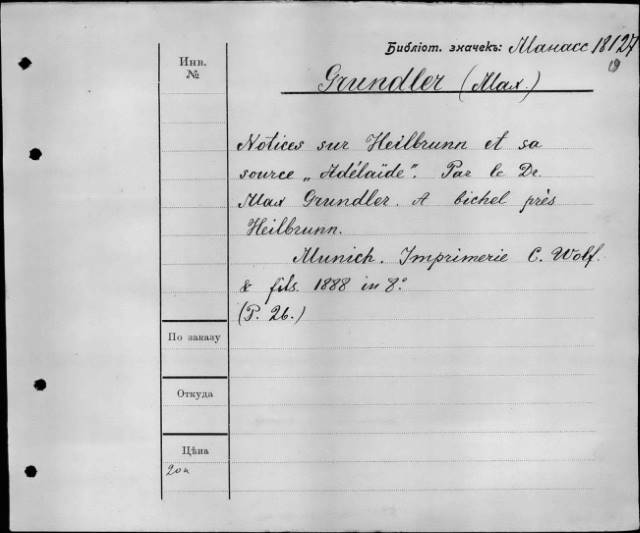 Библіот. значекъ: Манасс 18127
Инв.
№
Grundler (Max.)
Notices sur Heilbrunn et sa
source „Adélaïde". Par le Dr.
Max Grundler. A bichel près
Heilbrunn.
Munich. Imprimerie C. Wolf.
& fils. 1888 in 8°
(P. 26.)
По заказу
Откуда
Цѣна